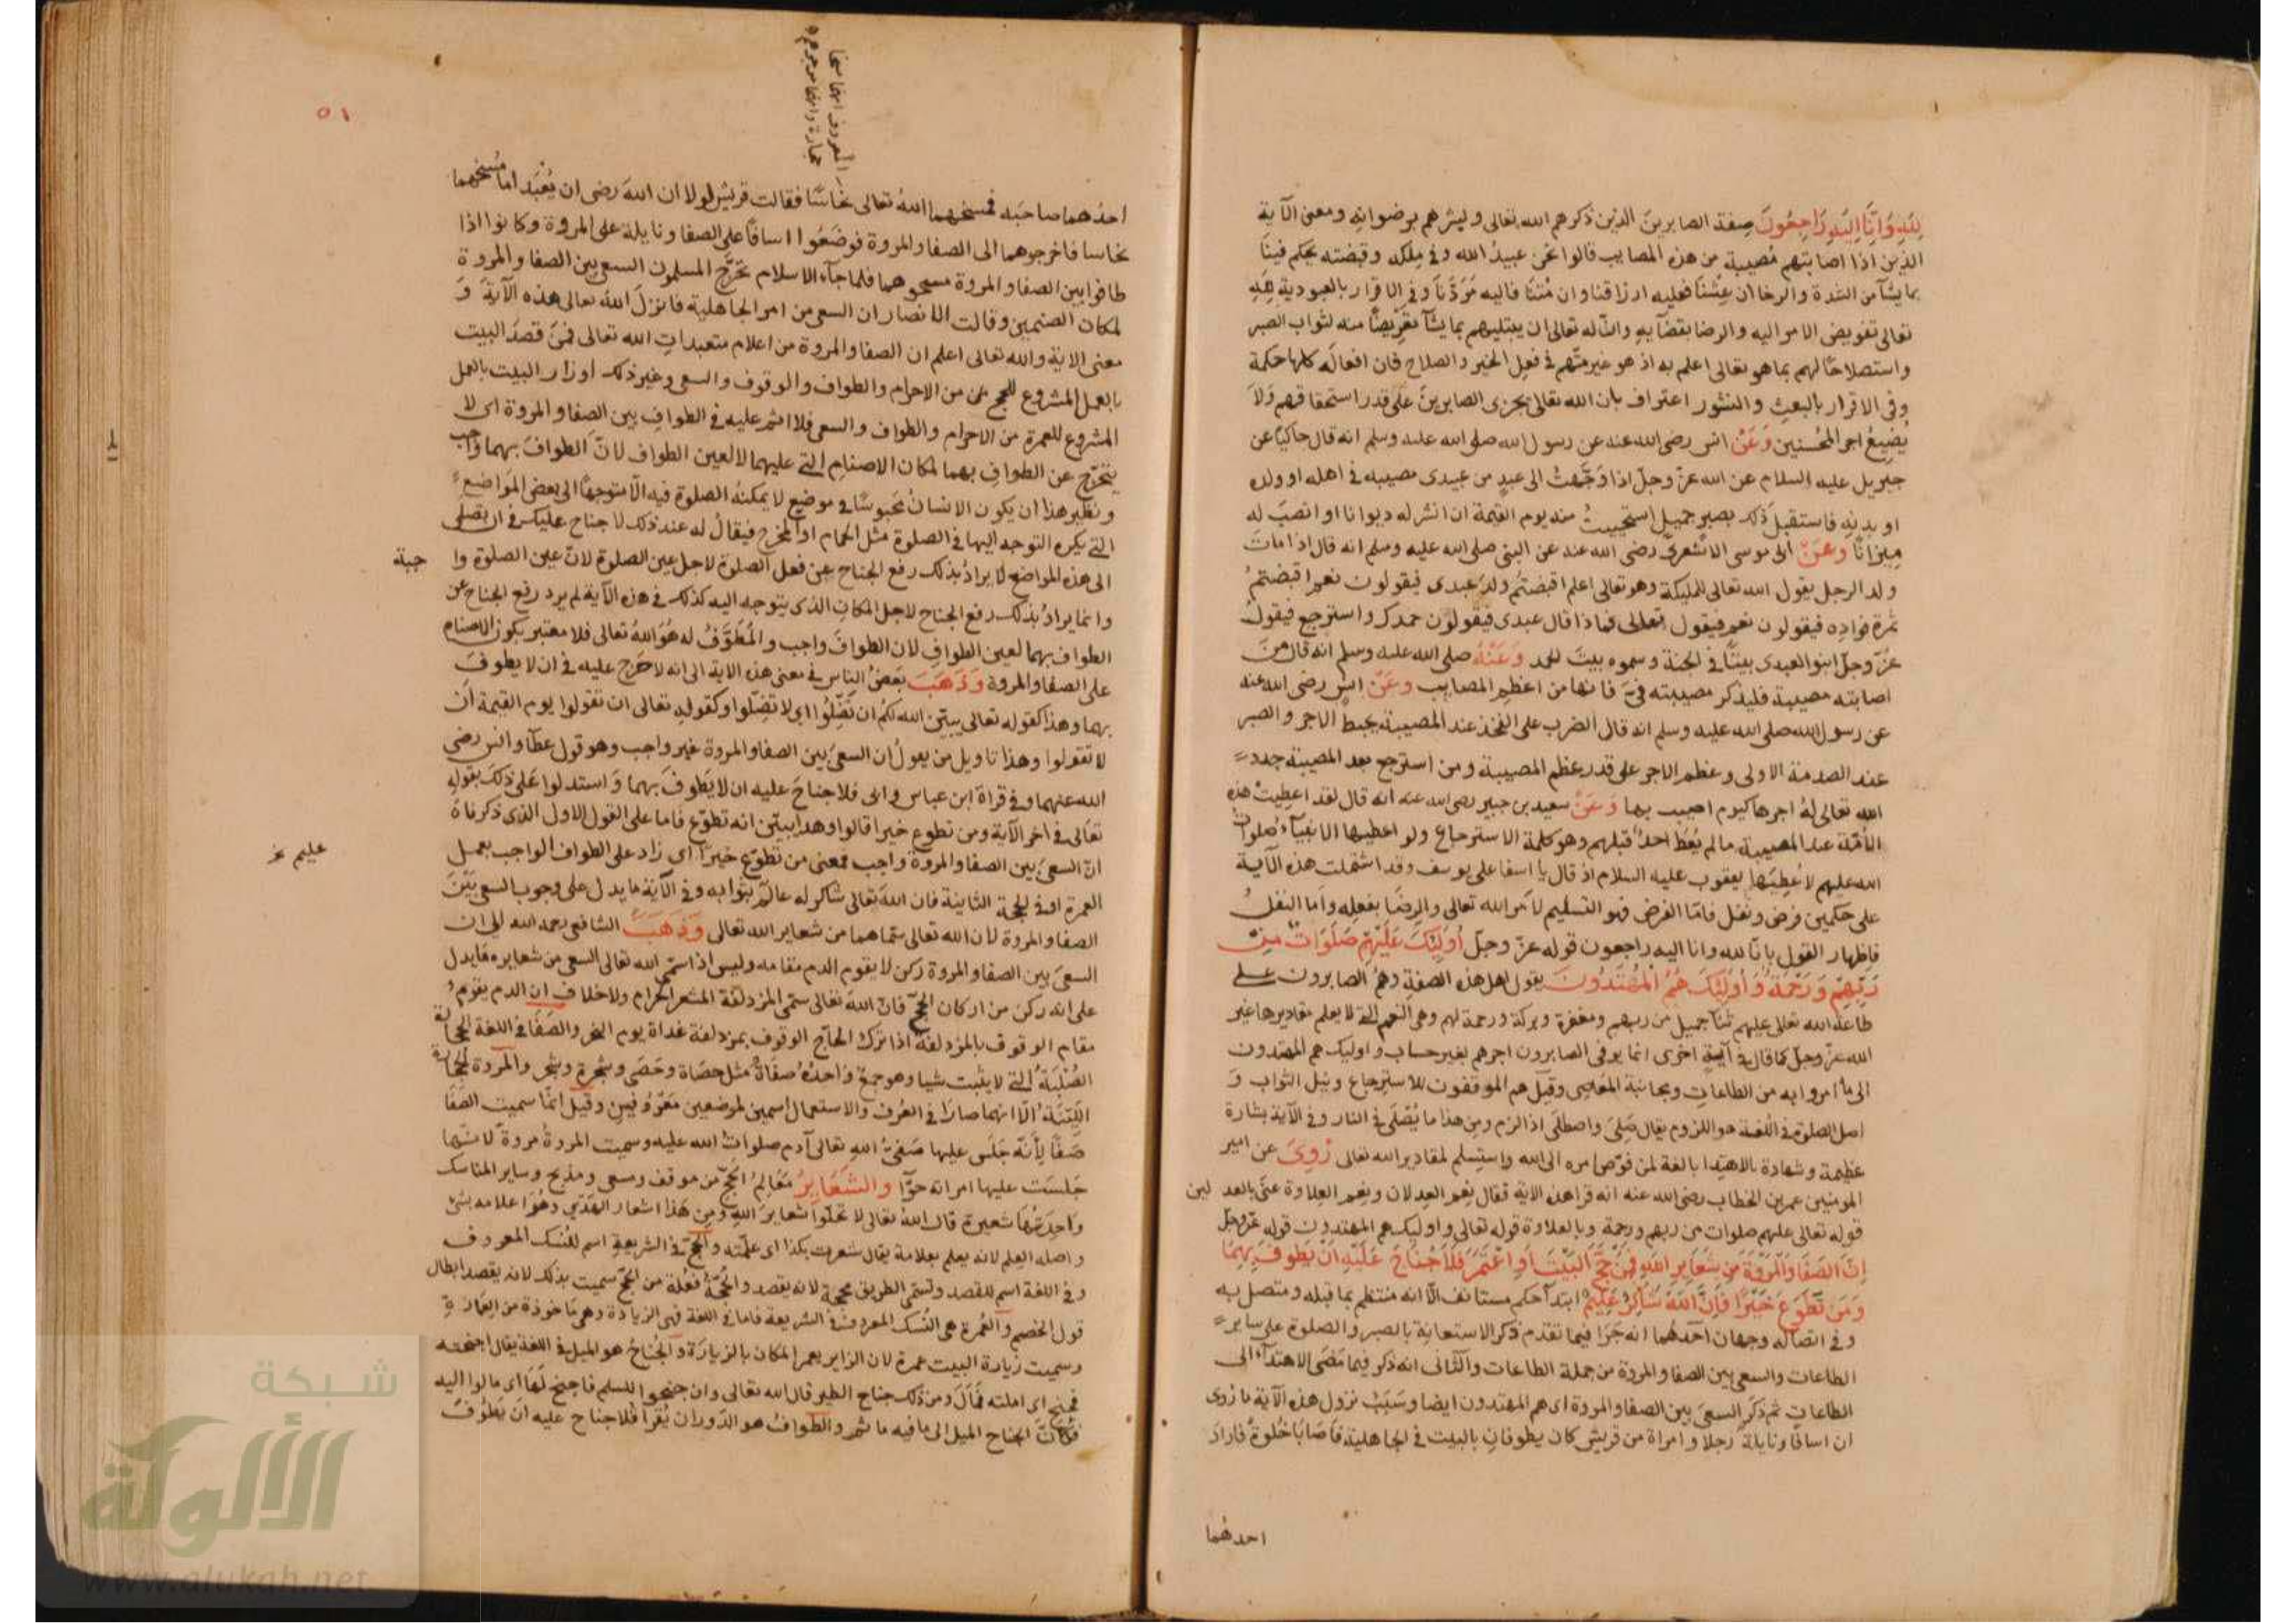 لله وانا اليه راجعون صفة الصابرين الذين ذكرهم الله تعالى وبشرهم برضوانه ومعنى الآية
الذين اذا اصابتهم مصيبة من هذه المصايب قالوا نحن عبيد الله وفي ملكه وقبضته يحكم فينا
بما يشآ من الشدة والرخا ان عشنا فعليه ارزاقنا وان متنا فاليه مردنا وفي الاقرار بالعبودية لله
تعالى تفويض الامر اليه والرضا بقضآيه وانّ له تعالى ان يبتليهم بما يشآ تعريضا منه لثواب الصبر
واستصلاحا لهم بما هو تعالى اعلم به اذ هو غير متهم في فعل الخير والصلاح فان افعاله كلها حكمة
وفي الاقرار بالبعث والنشور اعتراف بان الله تعالى يجزى الصابرين على قدر استحقاقهم ولا
يضيع اجر المحسنين وعن انس رضى الله عنه عن رسول الله صلى الله عليه وسلم انه قال حاكيا عن
جبريل عليه السلام عن الله عز وجل اذا وجّهت الى عبد من عبيدى مصيبه في اهله او ولده
او بدنه فاستقبل ذلك بصبر جميل استحييت منه يوم القيمة ان انشر له ديوانا او انصب له
ميزانا وعن ابى موسى الاشعرى رضى الله عنه عن النبى صلى الله عليه وسلم انه قال اذا مات
ولد الرجل يقول الله تعالى للمليكة وهو تعالى اعلم اقبضتم ولد عبدى فيقولون نعم اقبضتم
ثمرة فواده فيقولون نعم فيقول تعالى فماذا قال عبدى فيقولون حمدك واسترجع فيقول
عزّ وجلّ ابنوا لعبدى بيتا في الجنة وسموه بيت الحمد وعنه صلى الله عليه وسلم انه قال من
اصابته مصيبة فليذكر مصيبته فيّ فانها من اعظم المصايب وعن انس رضى الله عنه
عن رسول الله صلى الله عليه وسلم انه قال الضرب على الفخذ عند المصيبة يحبط الاجر والصبر
عند الصدمة الاولى وعظم الاجر على قدر عظم المصيبة ومن استرجع بعد المصيبة جدد
الله تعالى له اجرها كيوم اصيب بها وعن سعيد بن جبير رضى الله عنه انه قال لقد اعطيت هذه
الامة عند المصيبة ما لم يعط احد قبلهم وهو كلمة الاسترجاع ولو اعطيها الانبيآء صلوات
الله عليهم لاعطيها يعقوب عليه السلام اذ قال يا اسفا على يوسف وقد اشتملت هذه الآية
على حكمين فرض ونفل فامّا الفرض فهو التسليم لامر الله تعالى والرضا بفعله واما النفل
فاظهار القول بانّا لله وانا اليه راجعون قوله عزّ وجلّ اولئك عليهم صلوات من
ربهم ورحمة واولئك هم المهتدون يقول اهل هذه الصفة وهم الصابرون على
طاعة الله تعالى عليهم ثنآ جميل من ربهم ومغفرة وبركة ورحمة لهم وهى النعم التى لا يعلم مقاديرها غير
الله عزّ وجلّ كما قال في آية اخرى انما يوفى الصابرون اجرهم بغير حساب واوليك هم المهتدون
الى ما امروا به من الطاعات ومجانبة المعاصى وقيل هم الموفقون للاسترجاع ونيل الثواب و
اصل الصلوة في اللغة هو اللزوم يقال صَلِىَ واصطلى اذا لزم ومن هذا ما يُصْلَى في النار وفي الآية بشارة
عظيمة وشهادة بالاهتدا بالغة لمن فوّض امره الى الله واستسلم لمقادير الله تعالى رُوِىَ عن امير
المومنين عمر بن الخطاب رضى الله عنه انه قرا هذه الاية فقال نعم العدلان ونعم العلاوة عنى بالعدلين
قوله تعالى عليهم صلوات من ربهم ورحمة وبالعلاوة قوله تعالى واوليك هم المهتدون قوله عزّ وجلّ
انّ الصفا والمروة من شعاير الله فمن حجّ البيت او اعتمر فلا جناح عليه ان يطوف بهما
ومن تطوع خيرا فان الله شاكر عليم ابتدآ حكم مستانف الّا انه منتظم بما قبله ومتصل به
وفي اتصاله وجهان احدهما انه جرا فيما تقدم ذكر الاستعانة بالصبر والصلوة على ساير
الطاعات والسعى بين الصفا والمروة من جملة الطاعات والثانى انه ذكر فيما مضى الاهتدآء الى
الطاعات ثم ذكر السعى بين الصفا والمروة اى هم المهتدون ايضا وسبب نزول هذه الآية ما رُوى
ان اسافا ونايلة رجلا وامراة من قريش كان يطوفان بالبيت في الجاهلية فاصابا خلوة فاراد
احدهما
٥١
احدهما صاحبه فمسخهما الله تعالى نحاسا فقالت قريش لولا ان الله رضى ان يُعْبَد اما مسخهما
نحاسا فاخرجوهما الى الصفا والمروة فوضعوا اسافا على الصفا ونايلة على المروة وكانوا اذا
طافوا بين الصفا والمروة مسحوهما فلما جآء الاسلام تحرّج المسلمون السعى بين الصفا والمروة
لمكان الصنمين وقالت الانصار ان السعى من امر الجاهلية فانزل الله تعالى هذه الآية و
معنى الاية والله تعالى اعلم ان الصفا والمروة من اعلام متعبدات الله تعالى فمن قصد البيت
بالعمل المشروع للحج من الاحرام والطواف والوقوف والسعى وغير ذلك او زار البيت بالعمل
المشروع للعمرة من الاحرام والطواف والسعى فلا اثم عليه في الطواف بين الصفا والمروة اى لا
يتحرّج عن الطواف بهما لمكان الاصنام التى عليهما لا لعين الطواف لانّ الطواف بهما واجب
ونظير هذا ان يكون الانسان محبوسا في موضع لا يمكنه الصلوة فيه الّا متوجها الى بعض المواضع
التى يكره التوجه اليها في الصلوة مثل الحمام او المخرج فيقال له عند ذلك لا جناح عليك في ان تصلى
الى هذه المواضع لا يراد بذلك رفع الجناح عن فعل الصلوة لاجل عين الصلوة لانّ عين الصلوة وا جبة
وانما يراد بذلك رفع الجناح لاجل المكان الذى يتوجه اليه كذلك في هذه الآية لم يرد رفع الجناح عن
الطواف بهما لعين الطواف لان الطواف واجب والمُطَوَّفُ له هو الله تعالى فلا معتبر بكون الاصنام
على الصفا والمروة وذهب بعض الناس في معنى هذه الاية الى انه لا حرج عليه في ان لا يطوف
بهما وهذا كقوله تعالى يبين الله لكم ان تضلوا اى لا تضلوا وكقوله تعالى ان تقولوا يوم القيمة اى
لا تقولوا وهذا تاويل من يقول ان السعى بين الصفا والمروة غير واجب وهو قول عطآ وانس رضى
الله عنهما وفي قراة ابن عباس وابى فلا جناح عليه ان لا يطوف بهما واستدلوا على ذلك بقوله
تعالى في اخر الآية ومن تطوع خيرا قالوا وهذا يبيّن انه تطوّع فاما على القول الاول الذى ذكرناه
انّ السعى بين الصفا والمروة واجب فمعنى من تطوع خيرا اى زاد على الطواف الواجب بعمل
العمرة او في الحجة الثانية فان الله تعالى شاكر له عالم بثوابه وفي الآية ما يدل على وجوب السعى بين
الصفا والمروة لان الله تعالى سمّاهما من شعاير الله تعالى وذهب الشافعى رحمه الله الى ان
السعى بين الصفا والمروة ركن لا يقوم الدم مقامه وليس اذا سمّى الله تعالى السعى من شعايره ما يدل
على انه ركن من اركان الحج فانّ الله تعالى سمّى المزدلفة المشعر الحرام ولا خلاف ان الدم يقوم
مقام الوقوف بالمزدلفة اذا ترك الحاجّ الوقوف بمزدلفة غداة يوم النحر والصفا في اللغة الحجارة
الصُلْبَة التى لا يثبت شيا وهو جمع واحده صفاة مثل حصاة وحَصَى وشجرة وشجر والمروة الحجارة
الليّنة الّا انهما صارا في العرف والاستعمال اسمين لموضعين معروفين وقيل انما سميت الصفا
صفا لانّه جلس عليها صفىّ الله تعالى آدم صلوات الله عليه وسميت المروة مروة لانها
جلست عليها امراته حوّا والشعاير معالم الحجّ من موقف ومسعى ومذبح وساير المناسك
واحدتها شعيرة قال الله تعالى لا تحلّوا شعاير الله ومن هذا اشعار الهدى وهو اعلامه بشئ
واصله العلم لانه يعلم بعلامة يقال شعرت بكذا اى علمته والحجّ في الشريعة اسم للنسك المعروف
وفي اللغة اسم للقصد وتسمّى الطريق محجة لانه يقصد والحُجّة فُعْلة من الحج سميت بذلك لانه يقصد ابطال
قول الخصم والعُمرة هى النسك المعروف في الشريعة فاما في اللغة فهى الزيادة وهى ماخوذة من العمارة
وسميت زيارة البيت عمرة لان الزاير يعمر المكان بالزيارة والجُناح هو الميل في اللغة يقال اجنحته
فجنح اى املته فمال ومن ذلك جناح الطير قال الله تعالى وان جنحوا للسلم فاجنح لها اى مالوا اليه
فكانّ الجناح الميل الى ما فيه ماثم والطواف هو الدَوران يُقرا فلا جناح عليه ان يَطُوف
عليم
شبكة
الألوكة
www.alukah.net